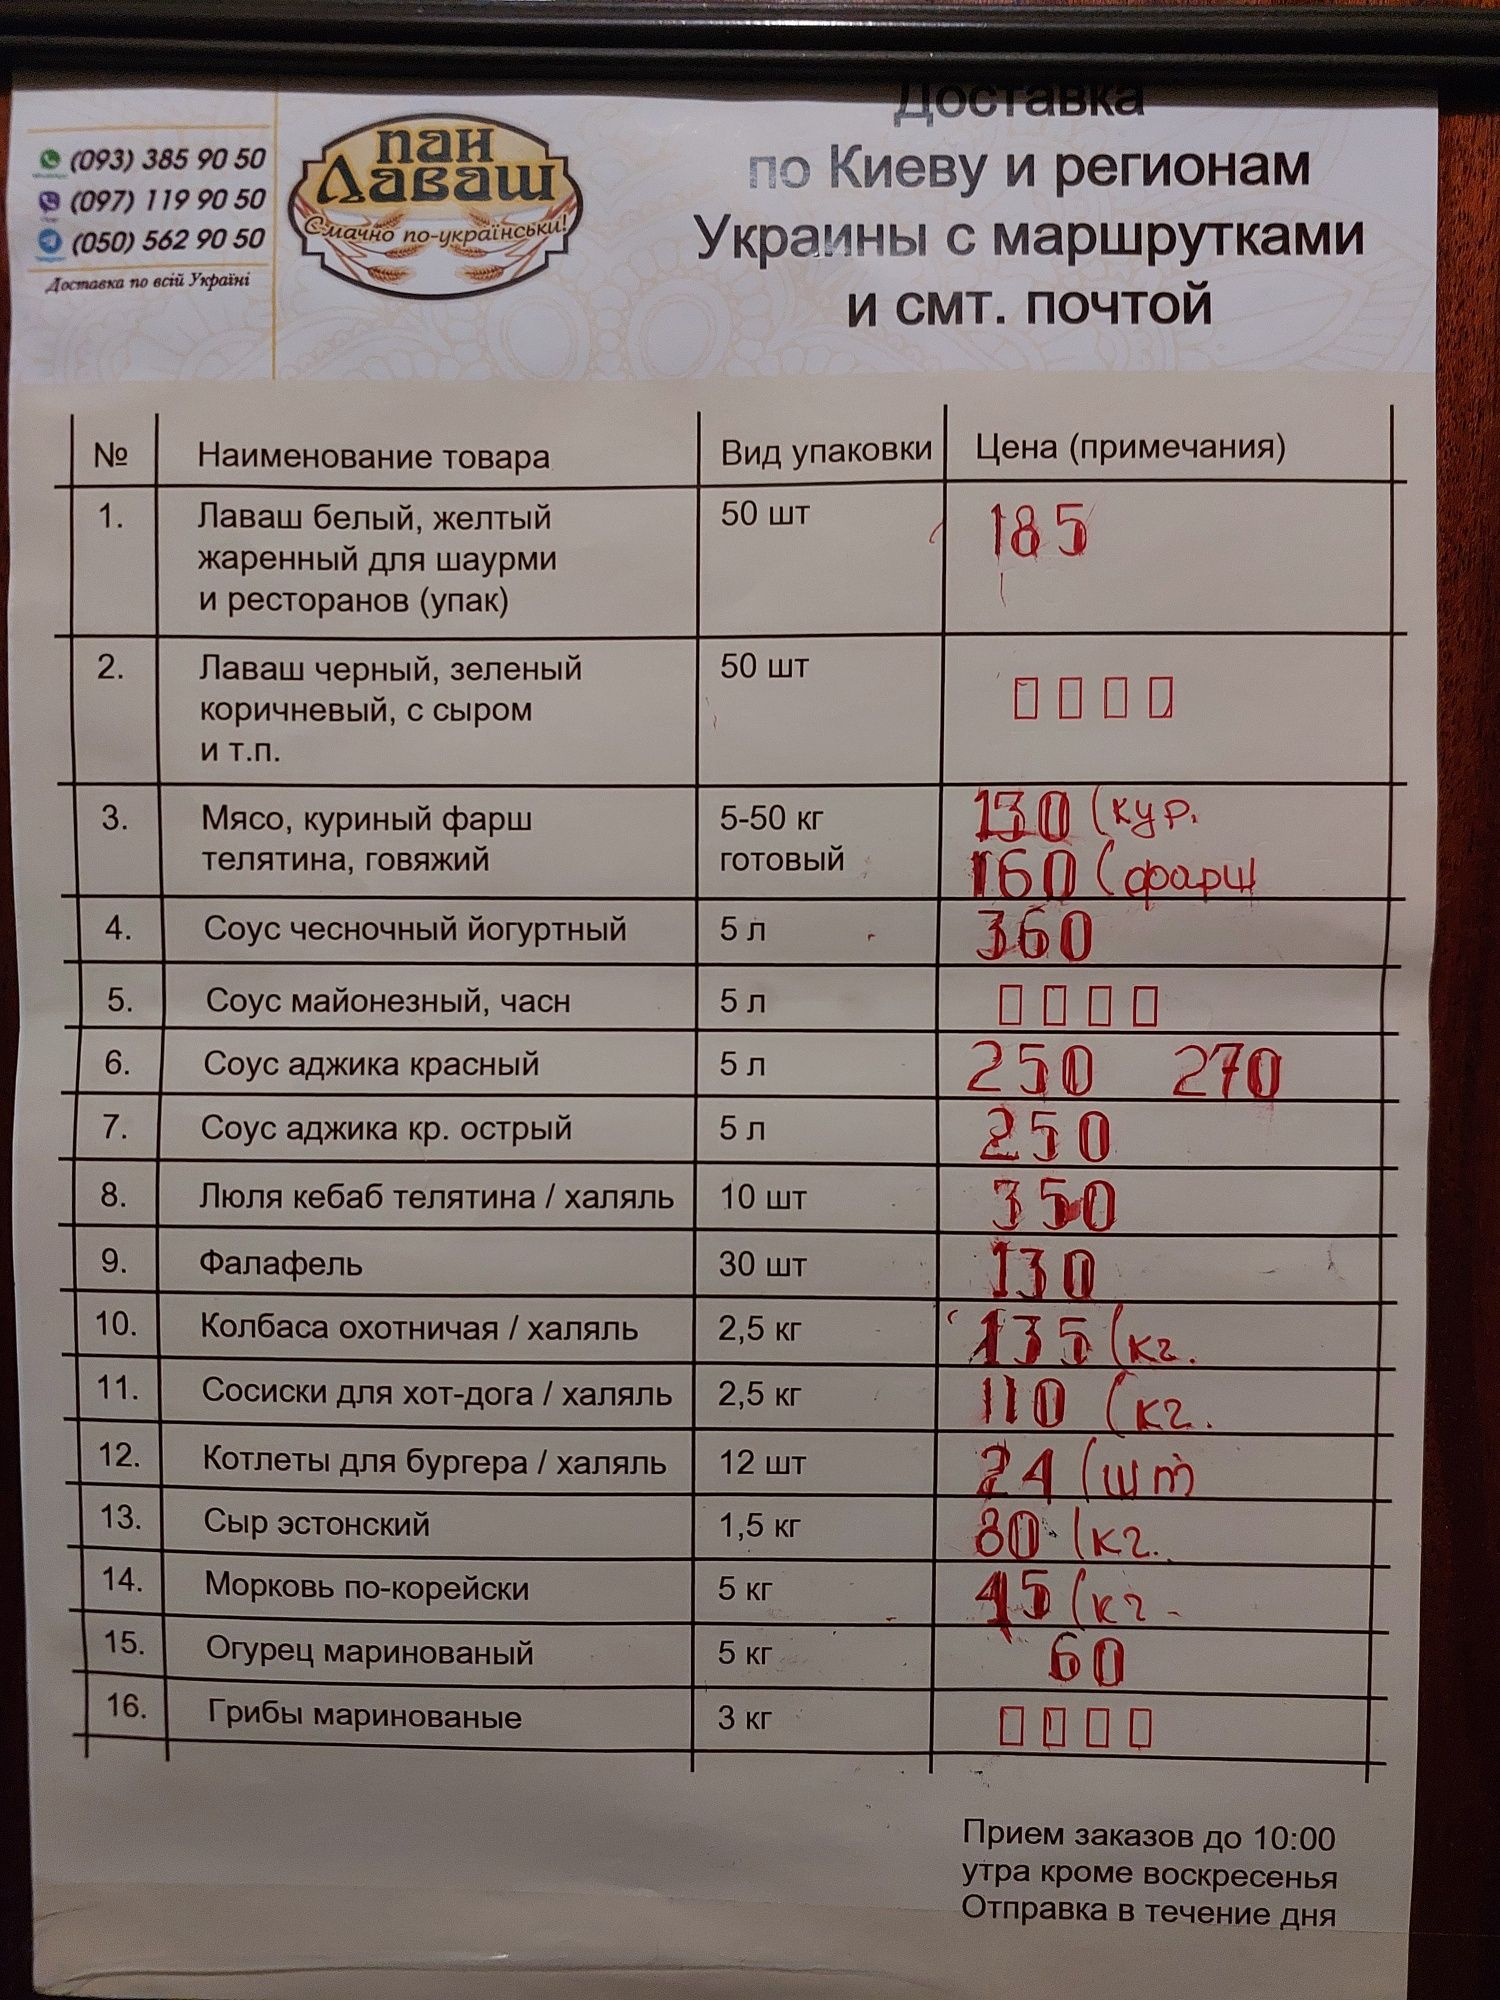 (093) 385 90 50
(097) 119 90 50
(050) 562 90 50
Доставка по всій Україні
пан
Лаваш
Смачно по-українськи!
Доставка
по Киеву и регионам
Украины с маршрутками
и смт. почтой
№ Наименование товара Вид упаковки Цена (примечания)
1. Лаваш белый, желтый 50 шт 185
жаренный для шаурми
и ресторанов (упак)
2. Лаваш черный, зеленый 50 шт
коричневый, с сыром
и т.п.
3. Мясо, куриный фарш 5-50 кг 130 (кур.
телятина, говяжий готовый 160 (фарш
4. Соус чесночный йогуртный 5 л 360
5. Соус майонезный, часн 5 л
6. Соус аджика красный 5 л 250 270
7. Соус аджика кр. острый 5 л 250
8. Люля кебаб телятина / халяль 10 шт 350
9. Фалафель 30 шт 130
10. Колбаса охотничая / халяль 2,5 кг 135 (кг.
11. Сосиски для хот-дога / халяль 2,5 кг 110 (кг.
12. Котлеты для бургера / халяль 12 шт 24 (шт
13. Сыр эстонский 1,5 кг 80 (кг.
14. Морковь по-корейски 5 кг 45 (кг.
15. Огурец маринованый 5 кг 60
16. Грибы маринованые 3 кг
Прием заказов до 10:00
утра кроме воскресенья
Отправка в течение дня